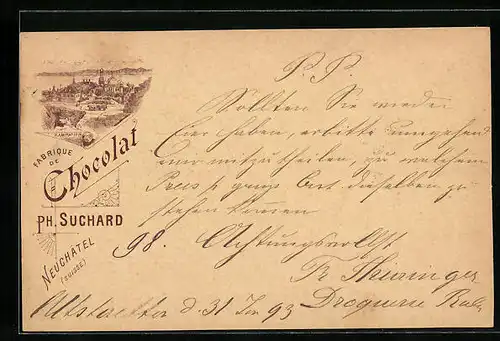 FABRIQUE
DE
Chocolat
PH. SUCHARD
NEUCHÂTEL
(SUISSE)
P. P.
Sollten Sie wieder
Eier haben, erbitte umgehend
mir mitzutheilen, zu welchem
Preis p. ganz dieselben zu
stehen kommen
98. Achtungsvollst
Fr. Thüringer
Altstaetten d. 31 Jan 93 Droguerie